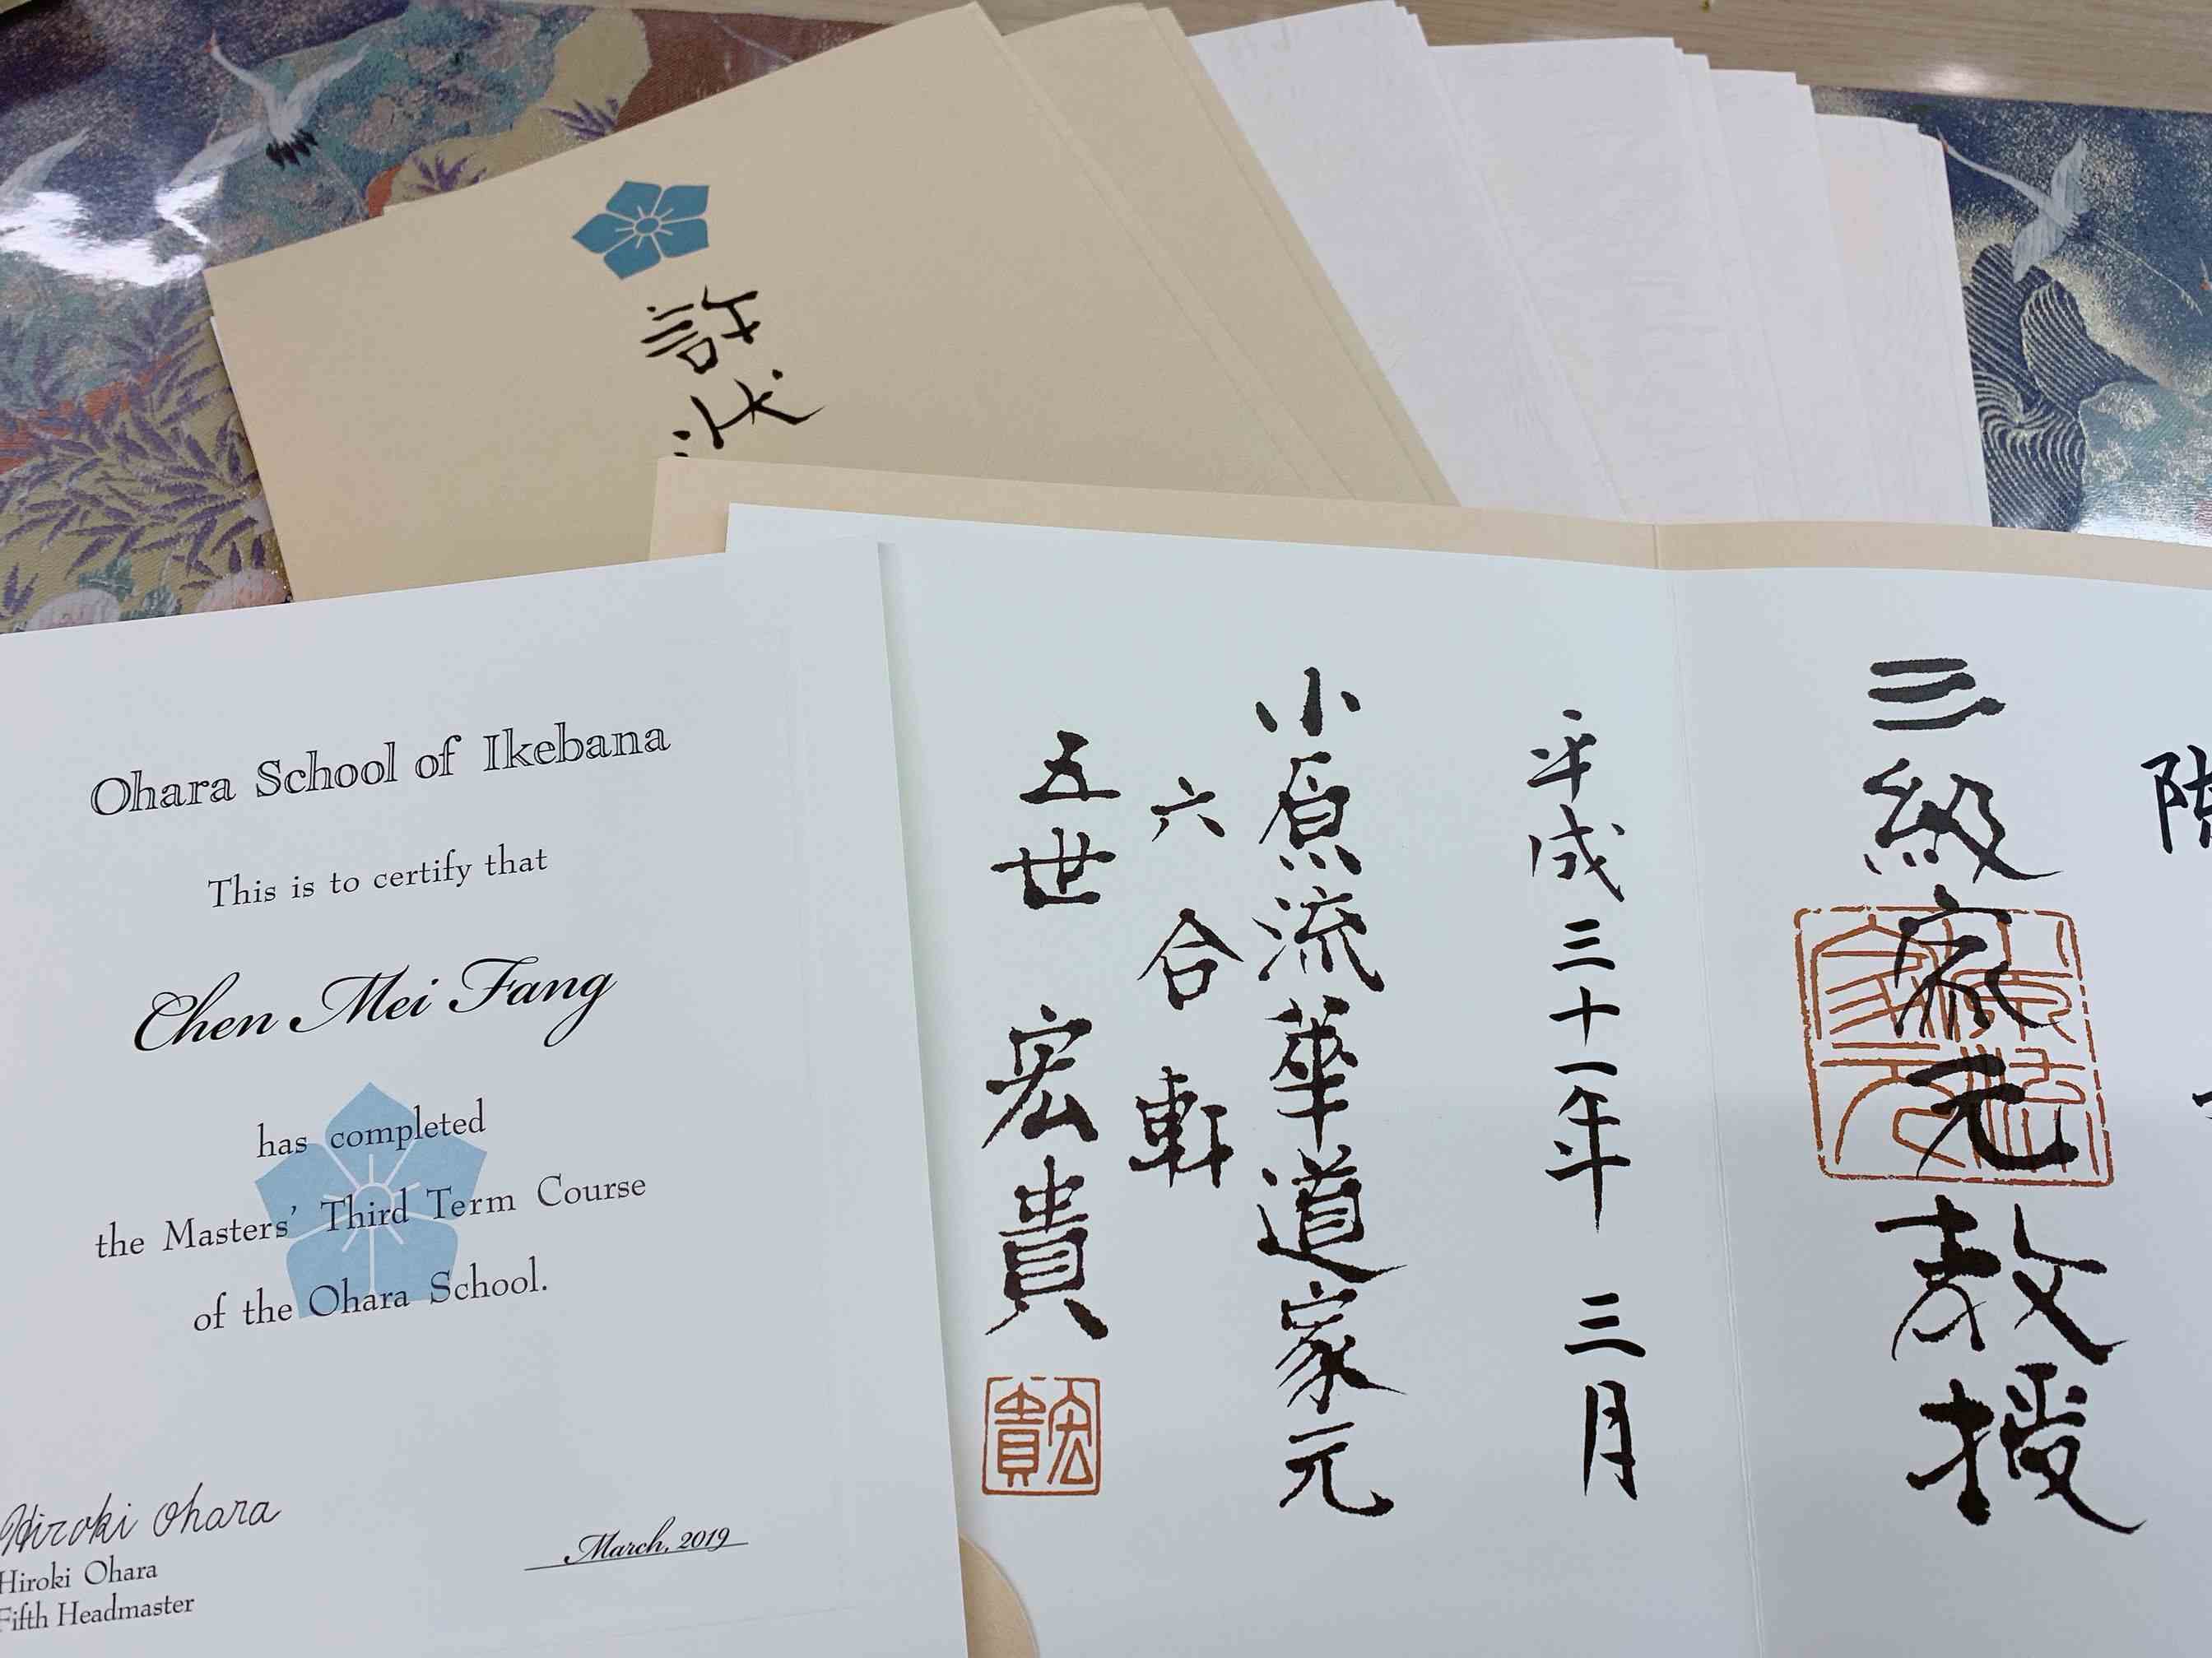 許状
Ohara School of Ikebana
This is to certify that
Chen Mei Fang
has completed
the Masters' Third Term Course
of the Ohara School.
Hiroki Ohara
Hiroki Ohara
Fifth Headmaster
March, 2019
陳
三級家元教授
平成三十一年 三月
小原流華道家元
六合軒
五世 宏貴
宏貴